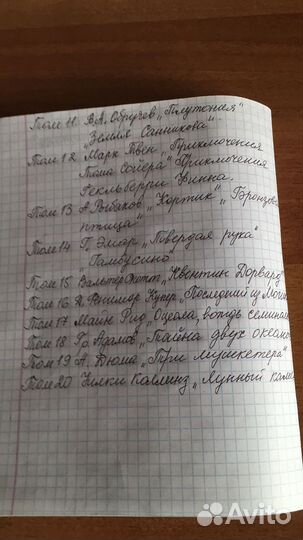 Том 11 В.А. Обручев „Плутония"
„Земля Санникова"
Том 12 Марк Твен „Приключения
Тома Сойера" Приключения
Гекльберри Финна.
Том 13 А. Рыбаков „Кортик" „Бронзова
птица"
Том 14 Г. Эмар „Твердая рука"
„Гамбусино"
Том 15 Вальтер Скотт „Квентин Дорвард"
Том 16 Д. Фенимор Купер „Последний из Моги
Том 17 Майн Рид „Оцеола, вождь семинол
Том 18 Гр. Адамов „Тайна двух океано
Том 19 А. Дюма „Три мушкетера"
Том 20 Уилки Коллинз „Лунный каме
Avito